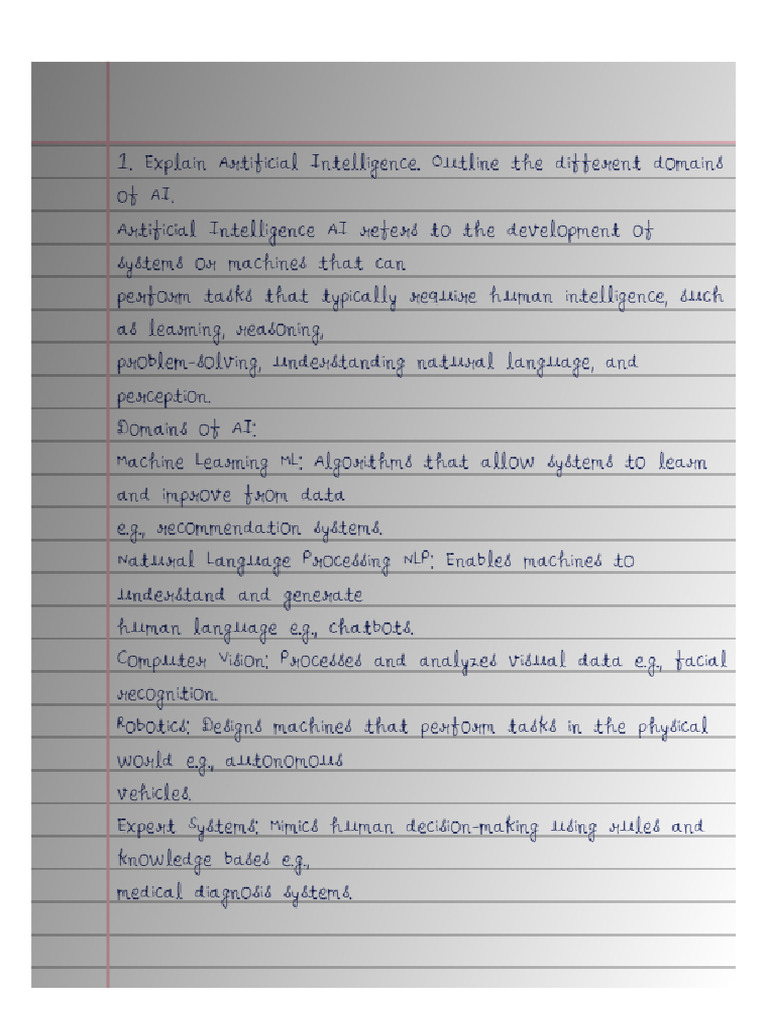 1. Explain Artificial Intelligence. Outline the different domains
of AI.
Artificial Intelligence AI refers to the development of
systems or machines that can
perform tasks that typically require human intelligence, such
as learning, reasoning,
problem-solving, understanding natural language, and
perception.
Domains of AI:
Machine Learning ML: Algorithms that allow systems to learn
and improve from data
e.g., recommendation systems.
Natural Language Processing NLP: Enables machines to
understand and generate
human language e.g., chatbots.
Computer Vision: Processes and analyzes visual data e.g., facial
recognition.
Robotics: Designs machines that perform tasks in the physical
world e.g., autonomous
vehicles.
Expert Systems: Mimics human decision-making using rules and
knowledge bases e.g.,
medical diagnosis systems.